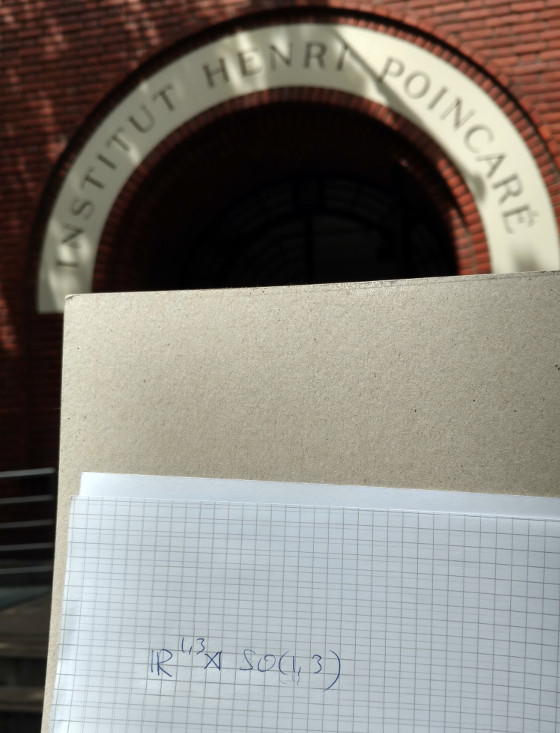 INSTITUT HENRI POINCARÉ
ℝ^{1,3} ⋊ SO(1,3)